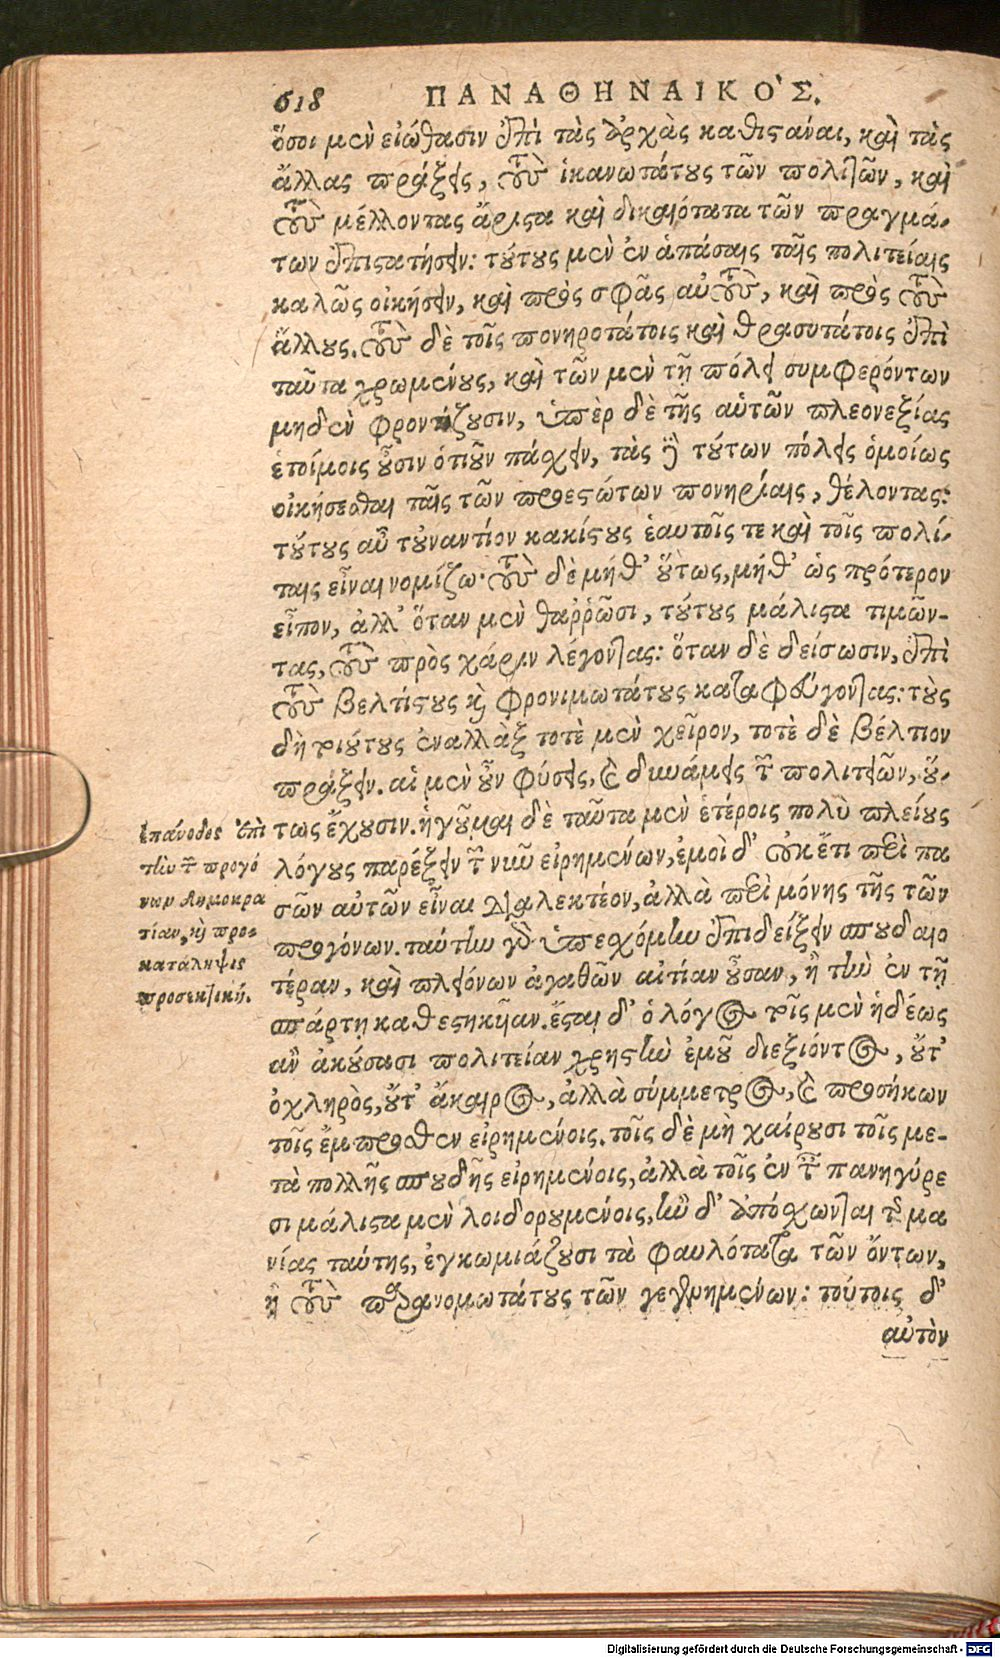 618 ΠΑΝΑΘΗΝΑΙΚΟ'Σ.
ὅσοι μὲν εἰώθασιν ἐπὶ τὰς ἀρχὰς καθιστάναι, καὶ τὰς
ἄλλας πράξεις, τοὺς ἱκανωτάτους τῶν πολιτῶν, καὶ
τοὺς μέλλοντας ἄριστα καὶ δικαιότατα τῶν πραγμά-
των ἐπιστατήσειν: τούτους μὲν ἐν ἁπάσαις ταῖς πολιτείαις
καλῶς οἰκήσειν, καὶ πρὸς σφᾶς αὐτοὺς, καὶ πρὸς τοὺς
ἄλλους. τοὺς δὲ τοῖς πονηροτάτοις καὶ θρασυτάτοις ἐπὶ
ταῦτα χρωμένους, καὶ τῶν μὲν τῇ πόλει συμφερόντων
μηδὲν φροντίζουσιν, ὑπὲρ δὲ τῆς αὑτῶν πλεονεξίας
ἑτοίμοις οὖσιν ὁτιοῦν πάσχειν, τὰς δὲ τούτων πόλεις ὁμοίως
οἰκήσεσθαι ταῖς τῶν προεστώτων πονηρίαις, θέλοντας:
τούτους αὖ τοὐναντίον κακίστους ἑαυτοῖς τε καὶ τοῖς πολί-
ταις εἶναι νομίζω· τοὺς δὲ μήθ' οὕτως, μήθ' ὡς πρότερον
εἶπον, ἀλλ' ὅταν μὲν θαῤῥῶσι, τούτους μάλιστα τιμῶν-
τας, τοὺς πρὸς χάριν λέγοντας: ὅταν δὲ δείσωσιν, ἐπὶ
τοὺς βελτίστους καὶ φρονιμωτάτους καταφεύγοντας: τοὺς
δὴ τοιούτους ἐναλλὰξ τοτὲ μὲν χεῖρον, τοτὲ δὲ βέλτιον
πράξειν. αἱ μὲν οὖν φύσεις, καὶ δυνάμεις τῶν πολιτειῶν, οὕ-
τως ἔχουσιν. ἡγοῦμαι δὲ ταῦτα μὲν ἑτέροις πολὺ πλείους
λόγους παρέξειν τῶν νῦν εἰρημένων, ἐμοὶ δ' οὐκ ἔτι περὶ πα
σῶν αὐτῶν εἶναι διαλεκτέον, ἀλλὰ περὶ μόνης τῆς τῶν
προγόνων. ταύτην γὰρ ὑπεσχόμην ἐπιδείξειν σπουδαιο
τέραν, καὶ πλειόνων ἀγαθῶν αἰτίαν οὖσαν, ἢ τὴν ἐν τῇ
σπάρτῃ καθεστηκυῖαν. ἔσται δ' ὁ λόγος τοῖς μὲν ἡδέως
ἂν ἀκούσασι πολιτείαν χρηστὴν ἐμοῦ διεξιόντος, οὔτ'
ὀχληρὸς, οὔτ' ἄκαιρος, ἀλλὰ σύμμετρος, καὶ προσήκων
τοῖς ἔμπροσθεν εἰρημένοις. τοῖς δὲ μὴ χαίρουσι τοῖς με-
τὰ πολλῆς σπουδῆς εἰρημένοις, ἀλλὰ τοῖς ἐν ταῖς πανηγύρε
σι μάλιστα μὲν λοιδορουμένοις, ἢν δ' ἀπόσχωνται τῆς μα
νίας ταύτης, ἐγκωμιάζουσι τὰ φαυλότατα τῶν ὄντων,
ἢ τοὺς παρανομωτάτους τῶν γεγενημένων: τούτοις δ'
αὐτὸν
Ἐπάνοδος ἐπὶ
τὴν τῶν προγό
νων δημοκρα
τίαν, καὶ προ-
κατάληψις
προσεκτική.
Digitalisierung gefördert durch die Deutsche Forschungsgemeinschaft - DFG